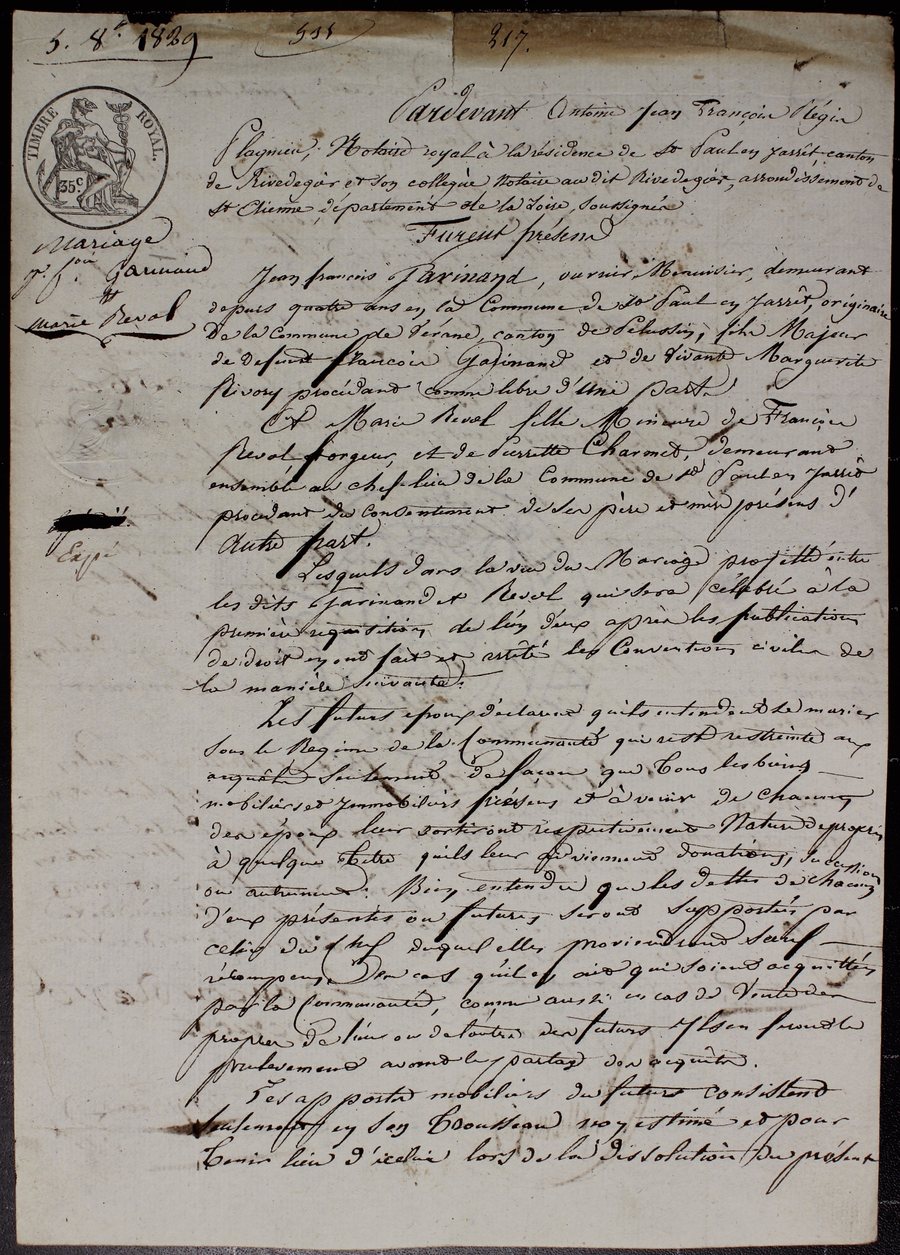 5. 8bre 1829
511
217.
TIMBRE ROYAL.
35 c
Mariage
Jn. fois Garinand
et
Marie Reval
Expé
Pardevant Antoine Jean François Régis
Plagnieu, Notaire royal à la résidence de St Paul en Jarrêt, canton
de Rivedegier et son collegue Notaire au dit Rivedegier, arrondissement de
St Etienne, département de la Loire, soussignés
Furent présens
Jean françois Garinand, ouvrier Menuisier, demeurant
depuis quatre ans en la Commune de St Paul en Jarrêt originaire
De la Commune de Verane, canton de Pelussin, fils Majeur
de Defunt francois Garinand et de vivante Marguerite
Rivory procédant comme libre d'Une part
Et Marie Reval fille Mineure de François
Reval forgeur, et de Pierrette Charmet, demeurant
ensemble au chef lieu de la Commune de St Paul en Jarrêt
procédant du consentement de ses père et mère présens d'
Autre part.
Lesquels dans la vue du Mariage projetté entre
les dits Garinand et Reval qui sera célébré à la
première requisition de l'un d'eux après les publications
de droit en ont fait et arrêté les Conventions civiles de
la manière suivante:
Les futurs epoux déclarent qu'ils entendent se marier
sous le Régime de la Communauté qui est restreinte aux
acquêts seulement, De façon que tous les biens
mobiliers et Immobiliers présens et à venir de chacun
des époux leur sortiront respectivement Nature de propres
à quelque titre qu'ils leur adviennent donations, succession
ou autrement: Bien entendu que les dettes de chacun
d'eux présentes ou futures seront supportés par
celui du Chef duquel elles proviendront sauf
récompense, en cas qu'il en ait qui soient acquittées
par la Communauté, comme aussi en cas de Vente des
propres de l'un ou de l'autre des futurs Ils en feront le
prelevement avant le partage des acquêts.
Les apports mobiliers du futur consistent
seulement en son trousseau non estimé et pour
tenir lieu d'icelui lors de la dissolution du présent